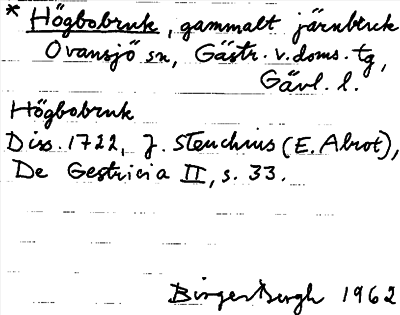 * Högbobruk, gammalt järnbruk
Ovansjö sn, Gästr. v. doms. tg,
Gävl. l.
Högbobruk
Diss. 1722, J. Steuchius (E. Abrot),
De Gestricia II, s. 33.
Birger Bergh 1962